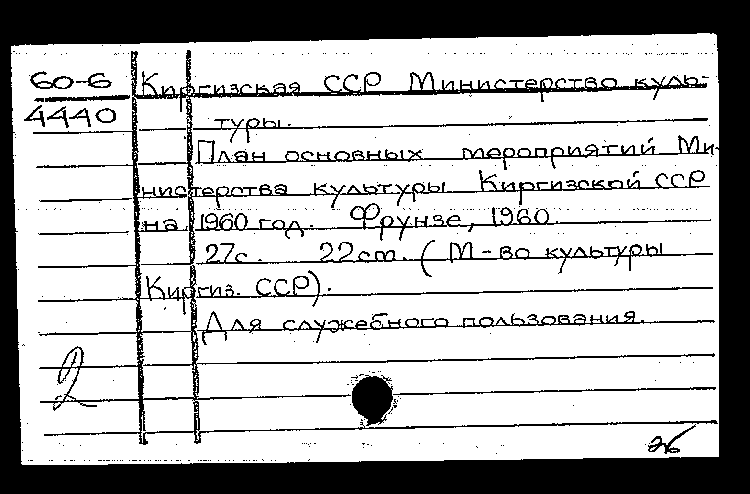 60-6
4440
Киргизская ССР Министерство куль-
туры.
План основных мероприятий Ми-
нистерства культуры Киргизской ССР
на 1960 год. Фрунзе, 1960
27с. 22cm. (М-во культуры
Киргиз. ССР).
Для служебного пользования.
2